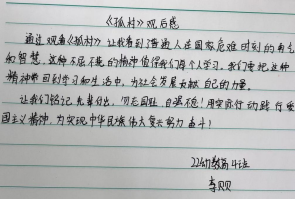 《孤村》观后感
通过观看《孤村》让我看到了普通人在国家危难时刻的勇气
和智慧，这种不屈不挠的精神值得我们每个人学习。我们要把这种
精神带回到学习和生活中，为社会发展贡献自己的力量。
让我们铭记先辈付出，勿忘国耻，自强不息！用实际行动践行爱
国主义精神，为实现中华民族伟大复兴努力奋斗！
22幼教高4班
李贝贝